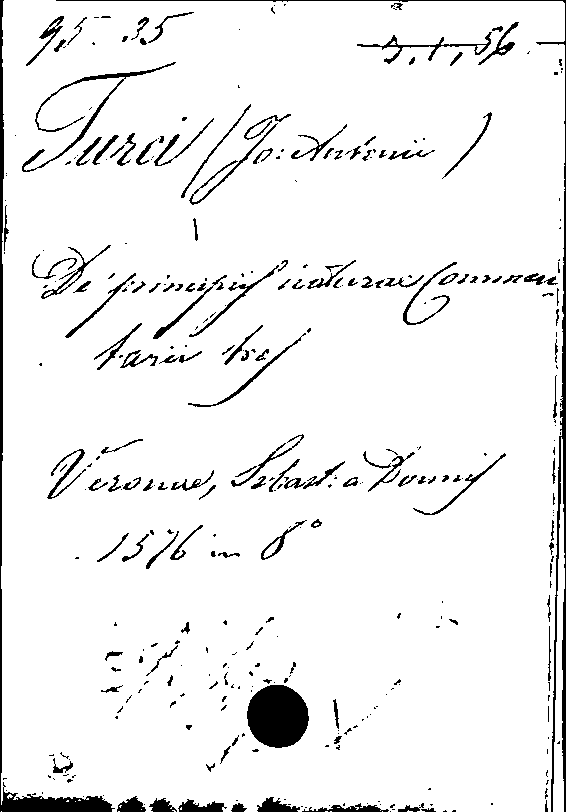 95. 35 3.1,56
Turci (Jo: Antonii)
De principiis naturae Commen
tarii tres
Veronae, Sebast: a Donnis
1576 in 8°